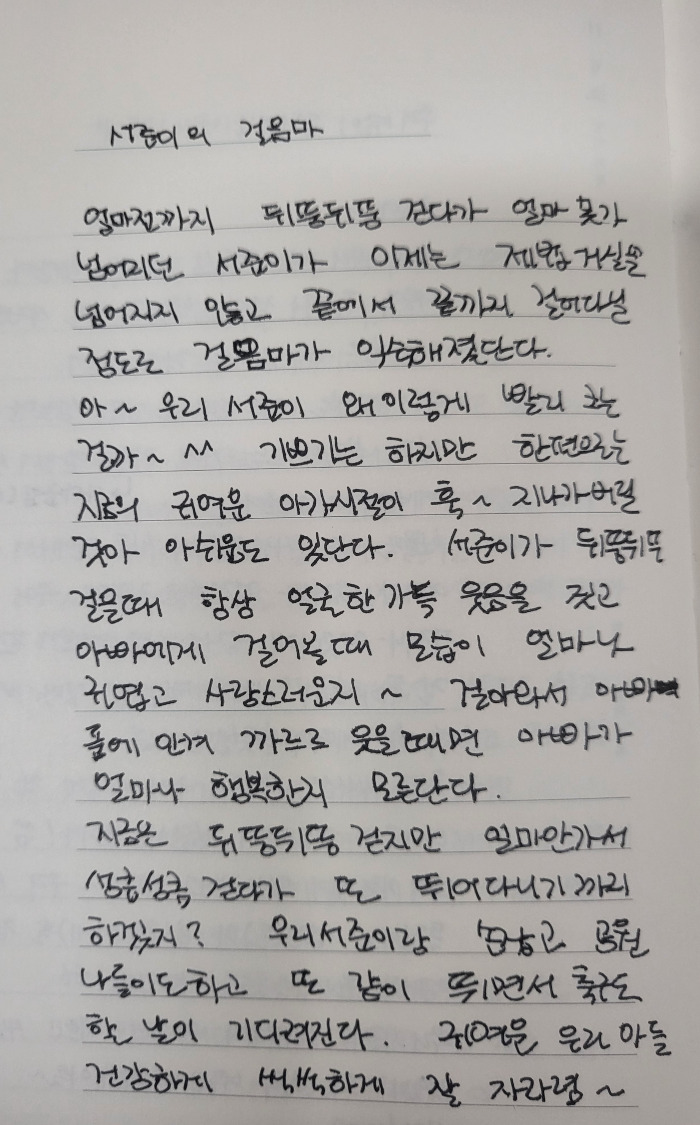 서준이의 걸음마
얼마전까지 뒤뚱뒤뚱 걷다가 얼마 못가
넘어지던 서준이가 이제는 제법 거실을
넘어지지 않고 끝에서 끝까지 걸어다닐
정도로 걸음마가 익숙해졌단다.
아~ 우리 서준이 왜이렇게 빨리 크는
걸까~ ^^ 기쁘기는 하지만 한편으로는
지금의 귀여운 아가시절이 훅~ 지나가버릴
것아 아쉬움도 있단다. 서준이가 뒤뚱뒤뚱
걸을때 항상 얼굴한가득 웃음을 짓고
아빠에게 걸어올때 모습이 얼마나
귀엽고 사랑스러운지~ 걸어와서 아빠
품에 안겨 까르르 웃을때면 아빠가
얼마나 행복한지 모른단다.
지금은 뒤뚱뒤뚱 걷지만 얼마안가서
성큼성큼 걷다가 또 뛰어다니기까지
하겠지? 우리서준이랑 손잡고 공원
나들이도하고 또 같이 뛰면서 축구도
할 날이 기다려진다. 귀여운 우리아들
건강하게 씩씩하게 잘 자라렴~